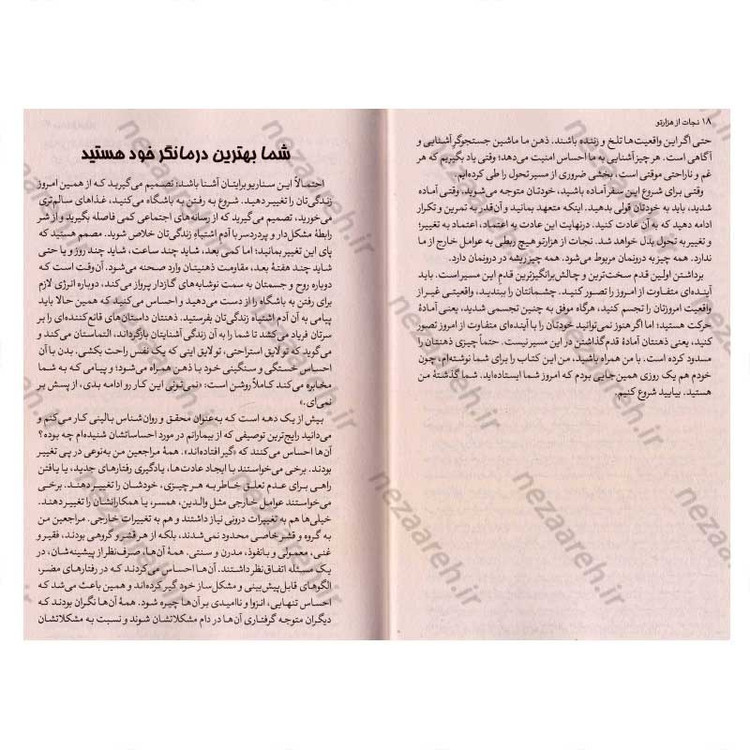 ۱۸ نجات از هزارتو
حتی اگر این واقعیت‌ها تلخ و زننده باشند. ذهن ما ماشین جستجوگر آشنایی و
آگاهی است. هر چیز آشنایی به ما احساس امنیت می‌دهد؛ وقتی یاد بگیریم که هر
غم و ناراحتی موقتی است، بخشی ضروری از مسیر تحول را طی کرده‌ایم.
وقتی برای شروع این سفر آماده باشید، خودتان متوجه می‌شوید. وقتی آماده
شدید، باید به خودتان قولی بدهید. اینکه متعهد بمانید و آن‌قدر به تمرین و تکرار
ادامه دهید که به آن عادت کنید. درنهایت این عادت به اعتماد، اعتماد به تغییر؛
و تغییر به تحول بدل خواهد شد. نجات از هزارتو هیچ ربطی به عوامل خارج از ما
ندارد. همه چیز به درونمان مربوط می‌شود. همه چیز ریشه در درونمان دارد.
برداشتن اولین قدم سخت‌ترین و چالش‌برانگیزترین قدمِ این مسیر است. باید
آینده‌ای متفاوت از امروز را تصور کنید. چشمانتان را ببندید، واقعیتی غیر از
واقعیت امروزتان را تجسم کنید، هرگاه موفق به چنین تجسمی شدید، یعنی آمادهٔ
حرکت هستید؛ اما اگر هنوز نمی‌توانید خودتان را با آینده‌ای متفاوت از امروز تصور
کنید، یعنی ذهنتان آمادهٔ قدم گذاشتن در این مسیر نیست. حتماً چیزی ذهنتان را
مسدود کرده است. با من همراه باشید، من این کتاب را برای شما نوشته‌ام، چون
خودم هم یک روزی همین‌جایی بودم که امروز شما ایستاده‌اید. شما گذشتهٔ من
هستید. بیایید شروع کنیم.
شما بهترین درمانگر خود هستید
احتمالاً این سناریو برایتان آشنا باشد: تصمیم می‌گیرید که از همین امروز
زندگی‌تان را تغییر دهید. شروع به رفتن به باشگاه می‌کنید، غذاهای سالم‌تری
می‌خورید، تصمیم می‌گیرید که از رسانه‌های اجتماعی کمی فاصله بگیرید و از شر
رابطهٔ مشکل‌دار و پردردسر با آدم اشتباه زندگی‌تان خلاص شوید. مصمم هستید که
پای این تغییر بمانید؛ اما کمی بعد، شاید چند ساعت، شاید چند روز و یا حتی
شاید چند هفتهٔ بعد، مقاومت ذهنیتان وارد صحنه می‌شود. آن‌وقت است که
دوباره روح و جسمتان به سمت نوشابه‌های گازدار پرواز می‌کند، دوباره انرژی لازم
برای رفتن به باشگاه را از دست می‌دهید و احساس می‌کنید که همین حالا باید
پیامی به آن آدم اشتباه زندگی‌تان بفرستید. ذهنتان داستان‌های قانع‌کننده‌ای را بر
سرتان فریاد می‌کشد تا شما را به آن زندگی آشنایتان بازگرداند، التماستان می‌کند و
می‌گوید که تو لایق استراحتی، تو لایق اینی که یک نفس راحت بکشی. بدن با آن
احساس خستگی و سنگینی خود با ذهن همراه می‌شود؛ و پیامی که به شما
مخابره می‌کند کاملاً روشن است: «نمی‌تونی این کار رو ادامه بدی، از پسش بر
نمی‌آی.»
بیش از یک دهه است که به‌عنوان محقق و روان‌شناس بالینی کار می‌کنم و
می‌دانید رایج‌ترین توصیفی که از بیمارانم در مورد احساساتشان شنیده‌ام چه بوده؟
آن‌ها احساس می‌کنند که «گیر افتاده‌اند». همهٔ مراجعین من به‌نوعی در پی تغییر
بودند. برخی می‌خواستند با ایجاد عادت‌ها، یادگیری رفتارهای جدید، یا یافتن
راهی برای عدم تعلق خاطر به هر چیزی، خودشان را تغییر دهند. برخی
می‌خواستند عوامل خارجی مثل والدین، همسر، یا همکارانشان را تغییر دهند.
خیلی‌ها هم به تغییرات درونی نیاز داشتند و هم به تغییرات خارجی. مراجعین من
به گروه و قشر خاصی محدود نمی‌شدند، بلکه از هر قشر و گروهی بودند، فقیر و
غنی، معمولی و بانفوذ، مدرن و سنتی. همهٔ آن‌ها، صرف‌نظر از پیشینه‌شان، در
یک مسئله اتفاق‌نظر داشتند. آن‌ها احساس می‌کردند که در رفتارهای مضر،
الگوهای قابل‌پیش‌بینی و مشکل‌ساز خود گیر کرده‌اند و همین باعث می‌شد که
احساس تنهایی، انزوا و ناامیدی بر آن‌ها چیره شود. همهٔ آن‌ها نگران بودند که
دیگران متوجه گرفتاری آن‌ها در دام مشکلاتشان شوند و نسبت به مشکلاتشان
nezaareh.ir